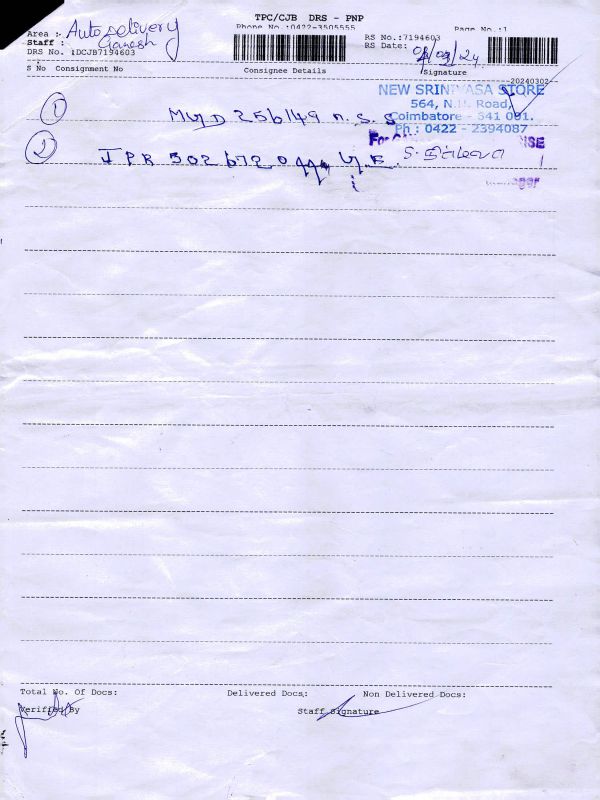 TPC/CJB DRS - PNP
Phone No.:0422-3505555 Page No.:1
Area : Auto Delivery
Staff : Ganesh
DRS No. :DCJB7194603
RS No.:7194603
RS Date: 02/03/24
S No Consignment No Consignee Details Signature
20240302
NEW SRINIVASA STORE
564, N.H. Road,
Coimbatore - 641 001.
Ph : 0422 - 2394087
① MYD 256149 n.s.s
For
② JPR 502672 0
Total No. Of Docs: Delivered Docs: Non Delivered Docs:
Verified By Staff Signature